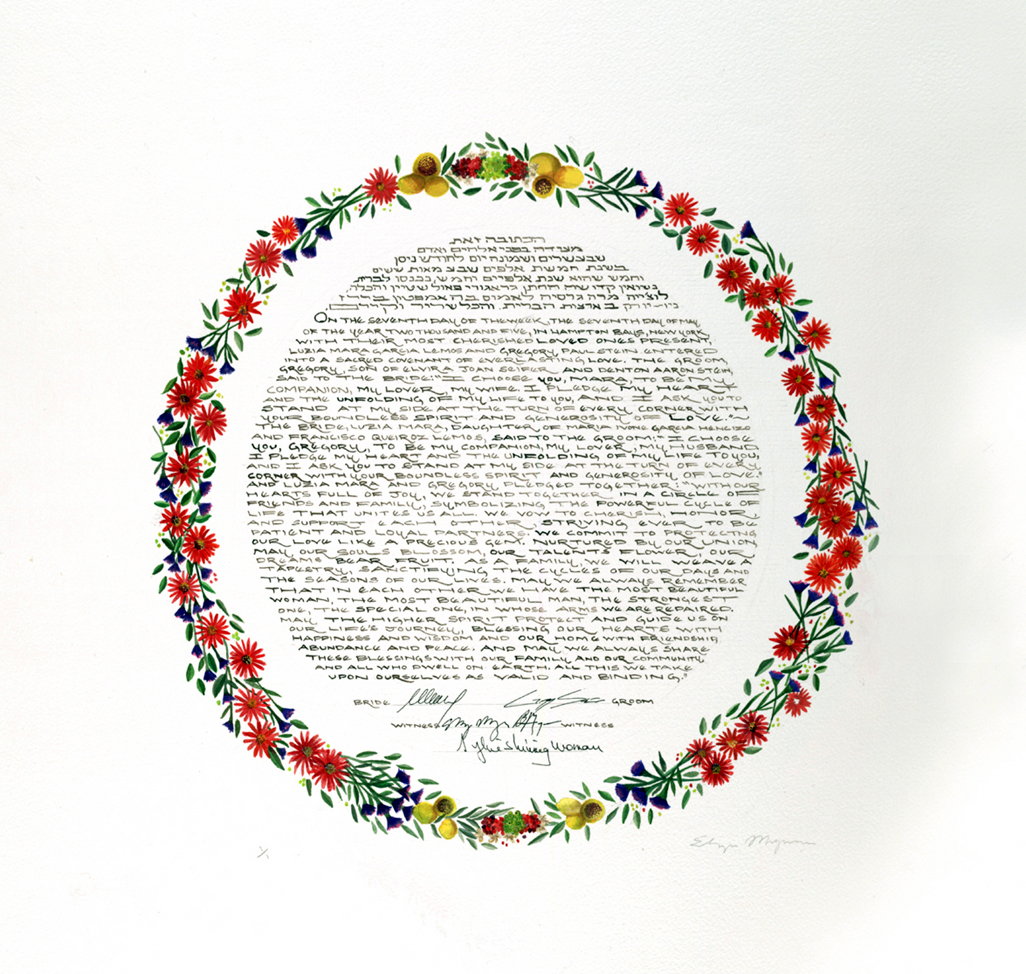 הכתובה זאת
מעידה בפני אלהים ואדם
שבעשרים ושמונה יום לחודש ניסן
בשנת חמשת אלפים שבע מאות ששים
וחמש שהיא שנת אלפיים וחמש, נכנסו לברית
נשואין קדושה החתן, גרגורי פאול שטיין והכלה
לוצייה מרה גרסיה לאמוס בהאמפטון בייז
ניו יורק בארצות הברית. והכל שריר וקיים
ON THE SEVENTH DAY OF THE WEEK, THE SEVENTH DAY OF MAY
OF THE YEAR TWO THOUSAND AND FIVE, IN HAMPTON BAYS, NEW YORK
WITH THEIR MOST CHERISHED LOVED ONES PRESENT,
LUZIA MARA GARCIA LEMOS AND GREGORY PAUL STEIN ENTERED
INTO A SACRED COVENANT OF EVERLASTING LOVE. THE GROOM,
GREGORY, SON OF ELVIRA JOAN SEIFER AND DENTON AARON STEIN
SAID TO THE BRIDE: "I CHOOSE YOU, MARA, TO BE MY
COMPANION, MY LOVER, MY WIFE. I PLEDGE MY HEART
AND THE UNFOLDING OF MY LIFE TO YOU, AND I ASK YOU TO
STAND AT MY SIDE AT THE TURN OF EVERY CORNER WITH
YOUR BOUNDLESS SPIRIT AND GENEROSITY OF LOVE."
THE BRIDE, LUZIA MARA, DAUGHTER OF MARIA IVONE GARCIA
AND FRANCISCO QUEIROZ LEMOS, SAID TO THE GROOM: "I CHOOSE
YOU, GREGORY, TO BE MY COMPANION, MY LOVER, MY HUSBAND
I PLEDGE MY HEART AND THE UNFOLDING OF MY LIFE TO YOU,
AND I ASK YOU TO STAND AT MY SIDE AT THE TURN OF EVERY
CORNER WITH YOUR BOUNDLESS SPIRIT AND GENEROSITY OF LOVE."
AND LUZIA MARA AND GREGORY PLEDGED TOGETHER: "WITH OUR
HEARTS FULL OF JOY, WE STAND TOGETHER IN A CIRCLE OF
FRIENDS AND FAMILY, SYMBOLIZING THE POWERFUL CYCLE OF
LIFE THAT UNITES US ALL. WE VOW TO CHERISH, HONOR,
AND SUPPORT EACH OTHER, STRIVING EVER TO BE
PATIENT AND LOYAL PARTNERS. WE COMMIT TO PROTECTING
OUR LOVE LIKE A PRECIOUS GEM. NURTURED BY OUR UNION
MAY OUR SOULS BLOSSOM, OUR TALENTS FLOWER, OUR
DREAMS BEAR FRUIT. AS A FAMILY, WE WILL WEAVE A
TAPESTRY, SANCTIFYING THE CYCLES OF OUR DAYS AND
THE SEASONS OF OUR LIVES. MAY WE ALWAYS REMEMBER
THAT IN EACH OTHER WE HAVE THE MOST BEAUTIFUL
WOMAN, THE MOST BEAUTIFUL MAN, THE STRONGEST
ONE, THE SPECIAL ONE, IN WHOSE ARMS WE ARE REPAIRED.
MAY THE HIGHER SPIRIT PROTECT AND GUIDE US ON
OUR LIFE'S JOURNEY, BLESSING OUR HEARTS WITH
HAPPINESS AND WISDOM AND OUR HOME WITH FRIENDSHIP,
ABUNDANCE AND PEACE. AND MAY WE ALWAYS SHARE
THESE BLESSINGS WITH OUR FAMILY, AND OUR COMMUNITY
AND ALL WHO DWELL ON EARTH. ALL THIS WE TAKE
UPON OURSELVES AS VALID AND BINDING."
BRIDE GROOM
WITNESS WITNESS
Shining Woman
1/1